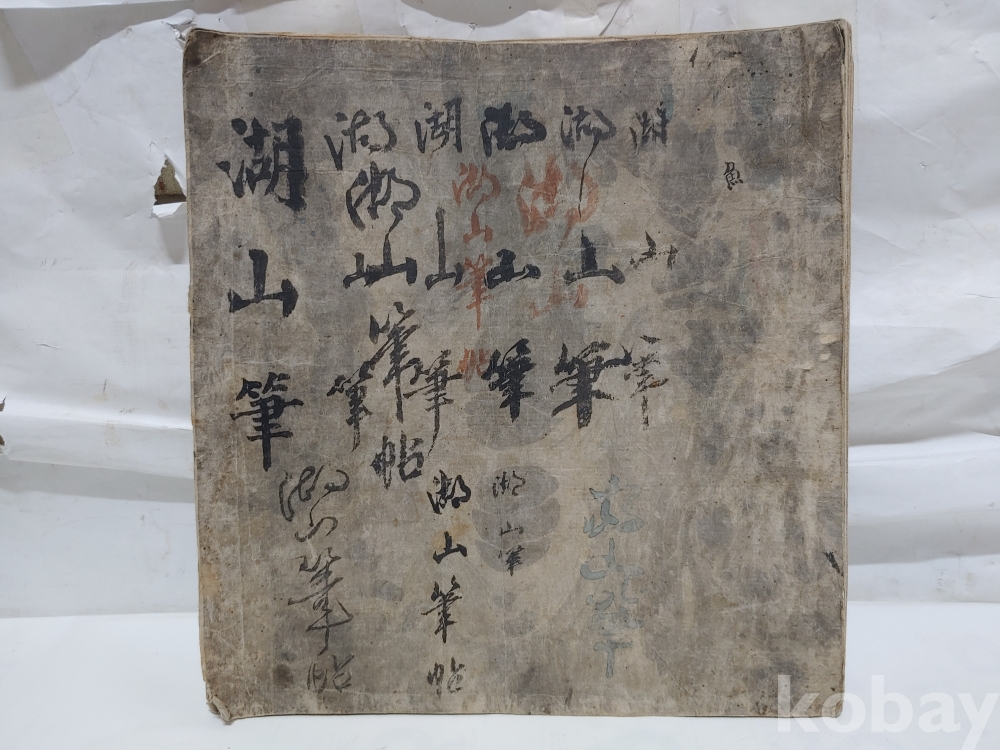 魚
湖山筆
湖山筆
湖山
湖山筆
湖山筆帖
湖山筆
湖山筆帖
湖筆
湖山筆
湖山筆
湖山筆帖
湖山筆帖
kobay